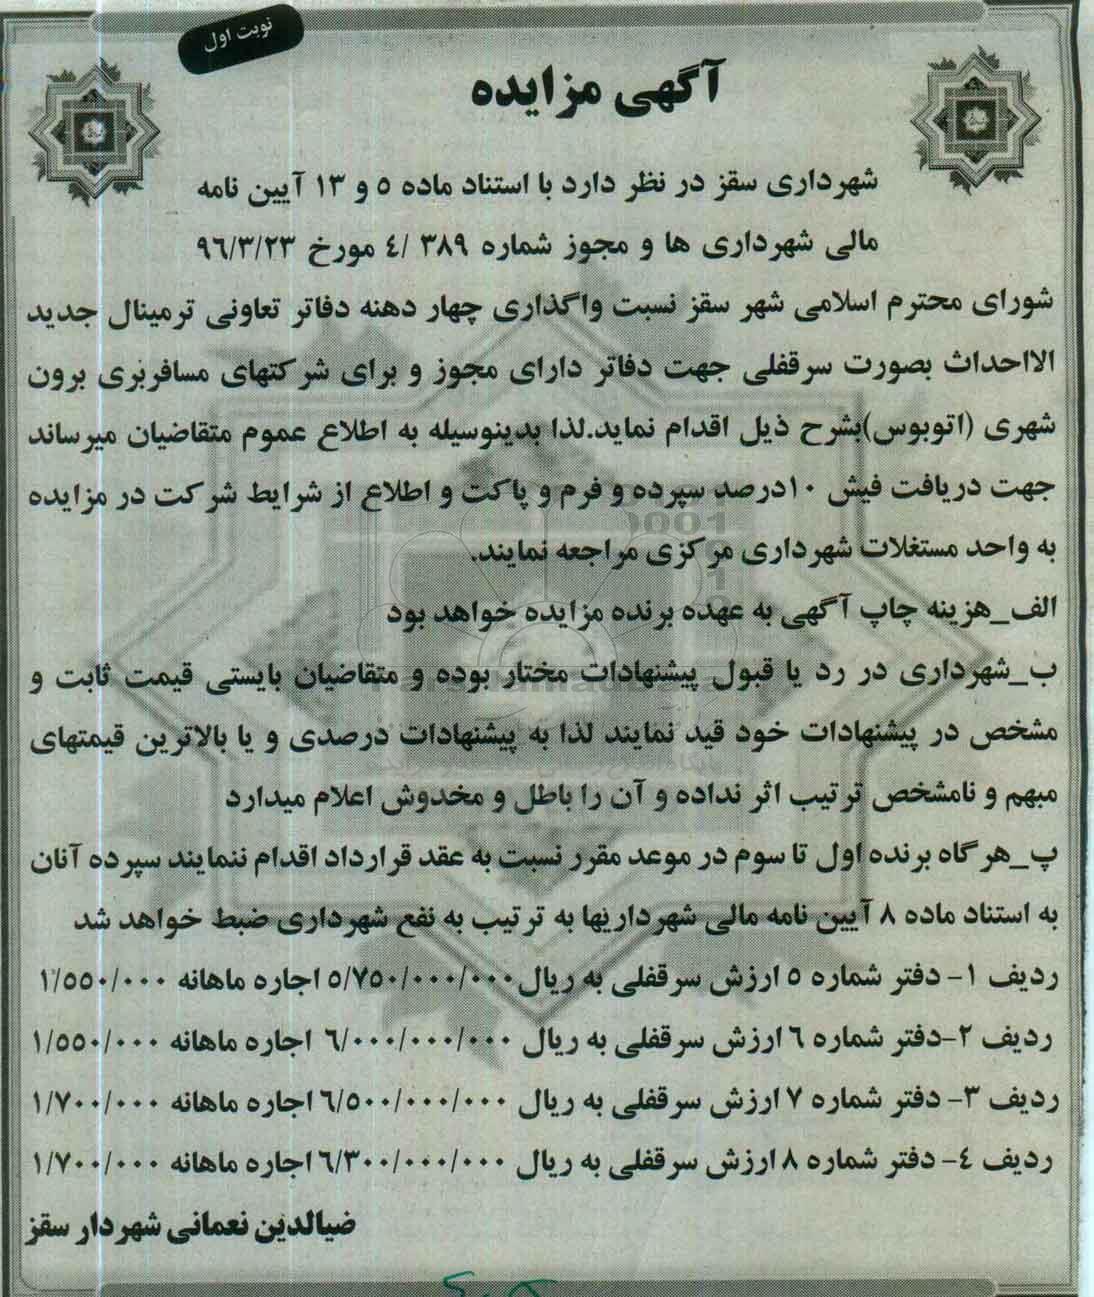 نوبت اول
آگهی مزایده
شهرداری سقز در نظر دارد با استناد ماده ٥ و ١٣ آیین نامه
مالی شهرداری ها و مجوز شماره ٣٨٩ /٤ مورخ ٩٦/٣/٢٣
شورای محترم اسلامی شهر سقز نسبت واگذاری چهار دهنه دفاتر تعاونی ترمینال جدید
الااحداث بصورت سرقفلی جهت دفاتر دارای مجوز و برای شرکتهای مسافربری برون
شهری (اتوبوس)بشرح ذیل اقدام نماید.لذا بدینوسیله به اطلاع عموم متقاضیان میرساند
جهت دریافت فیش ١٠درصد سپرده و فرم و پاکت و اطلاع از شرایط شرکت در مزایده
به واحد مستغلات شهرداری مرکزی مراجعه نمایند.
الف_هزینه چاپ آگهی به عهده برنده مزایده خواهد بود
ب_شهرداری در رد یا قبول پیشنهادات مختار بوده و متقاضیان بایستی قیمت ثابت و
مشخص در پیشنهادات خود قید نمایند لذا به پیشنهادات درصدی و یا بالاترین قیمتهای
مبهم و نامشخص ترتیب اثر نداده و آن را باطل و مخدوش اعلام میدارد
پ_هرگاه برنده اول تا سوم در موعد مقرر نسبت به عقد قرارداد اقدام ننمایند سپرده آنان
به استناد ماده ٨ آیین نامه مالی شهرداریها به ترتیب به نفع شهرداری ضبط خواهد شد
ردیف ١- دفتر شماره ٥ ارزش سرقفلی به ریال ٥/٧٥٠/٠٠٠/٠٠٠ اجاره ماهانه ١/٥٥٠/٠٠٠
ردیف ٢-دفتر شماره ٦ ارزش سرقفلی به ریال ٦/٠٠٠/٠٠٠/٠٠٠ اجاره ماهانه ١/٥٥٠/٠٠٠
ردیف ٣- دفتر شماره ٧ ارزش سرقفلی به ریال ٦/٥٠٠/٠٠٠/٠٠٠ اجاره ماهانه ١/٧٠٠/٠٠٠
ردیف ٤- دفتر شماره ٨ ارزش سرقفلی به ریال ٦/٣٠٠/٠٠٠/٠٠٠ اجاره ماهانه ١/٧٠٠/٠٠٠
ضیالدین نعمانی شهردار سقز